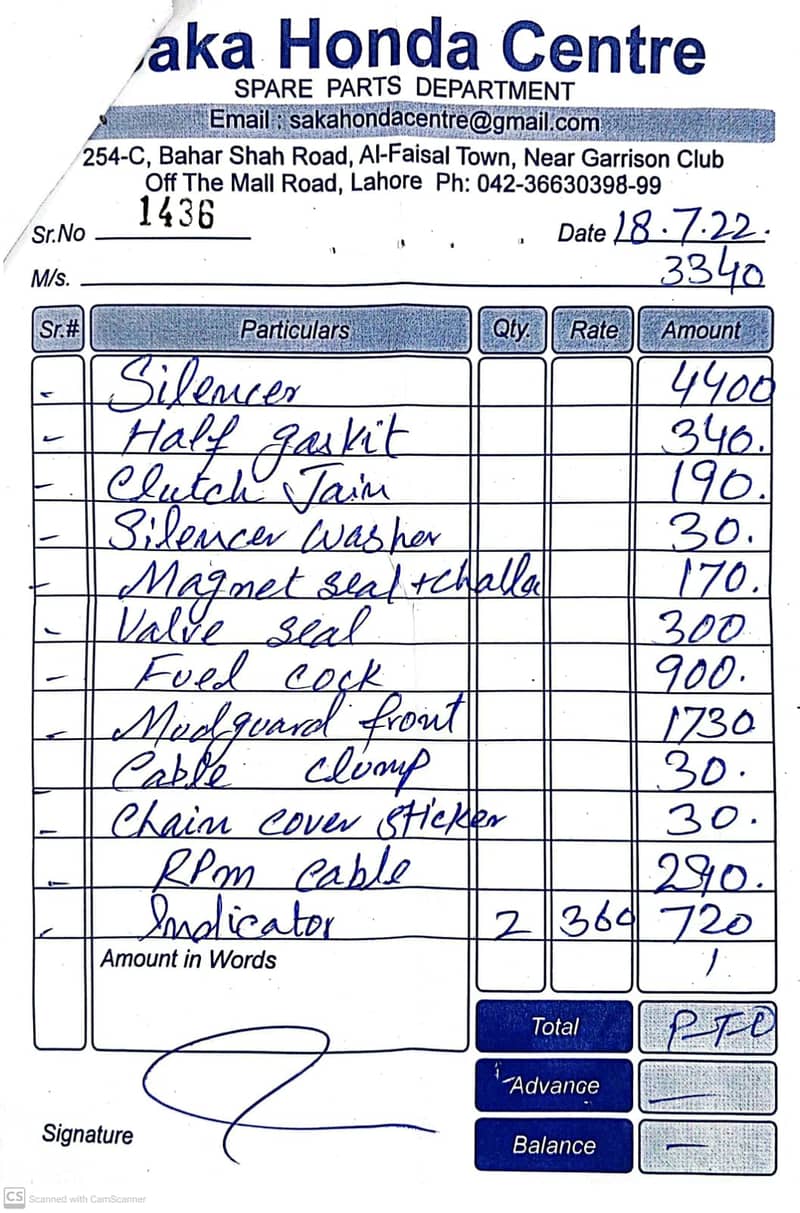 aka Honda Centre
SPARE PARTS DEPARTMENT
Email : sakahondacentre@gmail.com
254-C, Bahar Shah Road, Al-Faisal Town, Near Garrison Club
Off The Mall Road, Lahore Ph: 042-36630398-99
Sr.No 1436 Date 18.7.22.
M/s. 3340
Sr.# Particulars Qty. Rate Amount
- Silencer 4400
- Half gaskit 340.
- Clutch Jain 190.
- Silencer washer 30.
- Magnet seal + challa 170.
- Valve seal 300
- Fuel cock 900.
- Mudguard front 1730
Cable clump 30.
- Chain cover sticker 30.
- RPm cable 290.
- Indicator 2 360 720
Amount in Words
Total PTO
Advance —
Signature
Balance —
CS Scanned with CamScanner